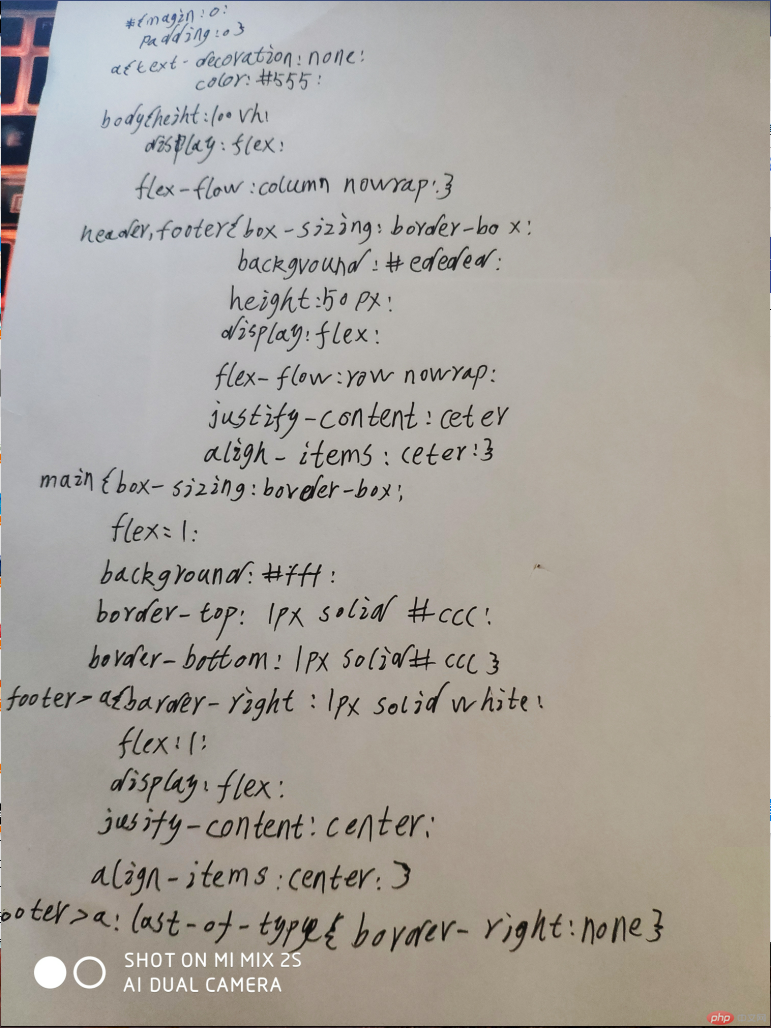 *{magin:0:
padding:0}
a{text-decoration:none:
color:#555:
body{height:100vh:
display:flex:
flex-flow:column nowrap:}
header,footer{box-sizing:border-box:
background:#ededed:
height:50px:
display:flex:
flex-flow:row nowrap:
justify-content:ceter
aligh-items:ceter:}
main{box-sizing:border-box;
flex=1:
background:#fff:
border-top: 1px solid #ccc:
border-bottom: 1px solid #ccc}
footer>a{barder-right:1px solid white:
flex:1:
display:flex:
jusify-content:center;
align-items:center:}
ooter>a:last-of-type{border-right:none}
SHOT ON MI MIX 2S
AI DUAL CAMERA
php